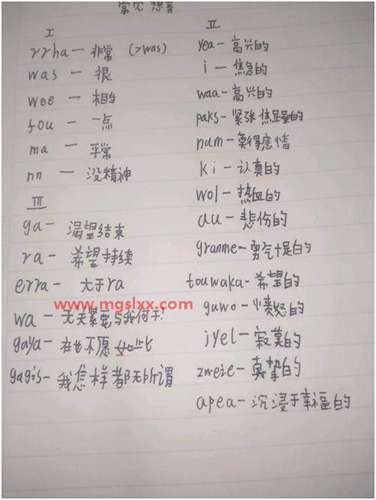 常见想音
I
rrha — 非常 (>was)
was — 很
wee — 相当
fou — 一点
ma — 平常
nn — 没精神
III
ga — 渴望结束
ra — 希望持续
erra — 大于ra
www.mgslxx.com
wa — 无关紧要
gaya —
gagis — 我怎样都无所谓
II
yea — 高兴的
i — 焦急的
waa — 高兴的
paks — 紧张
num — 莫得感情
ki — 认真的
wol — 热血的
au — 悲伤的
granme — 勇气十足的
touwaka — 希望的
guwo —
iyel — 寂寞的
zweie — 真挚的
apea — 沉浸于幸福的